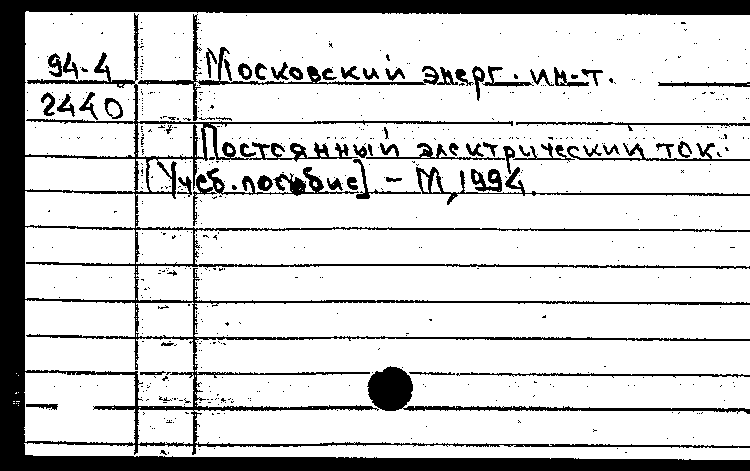 94-4 Московский энерг. ин-т.
2440
Постоянный электрический ток.:
[Учеб. пособие] - М, 1994.